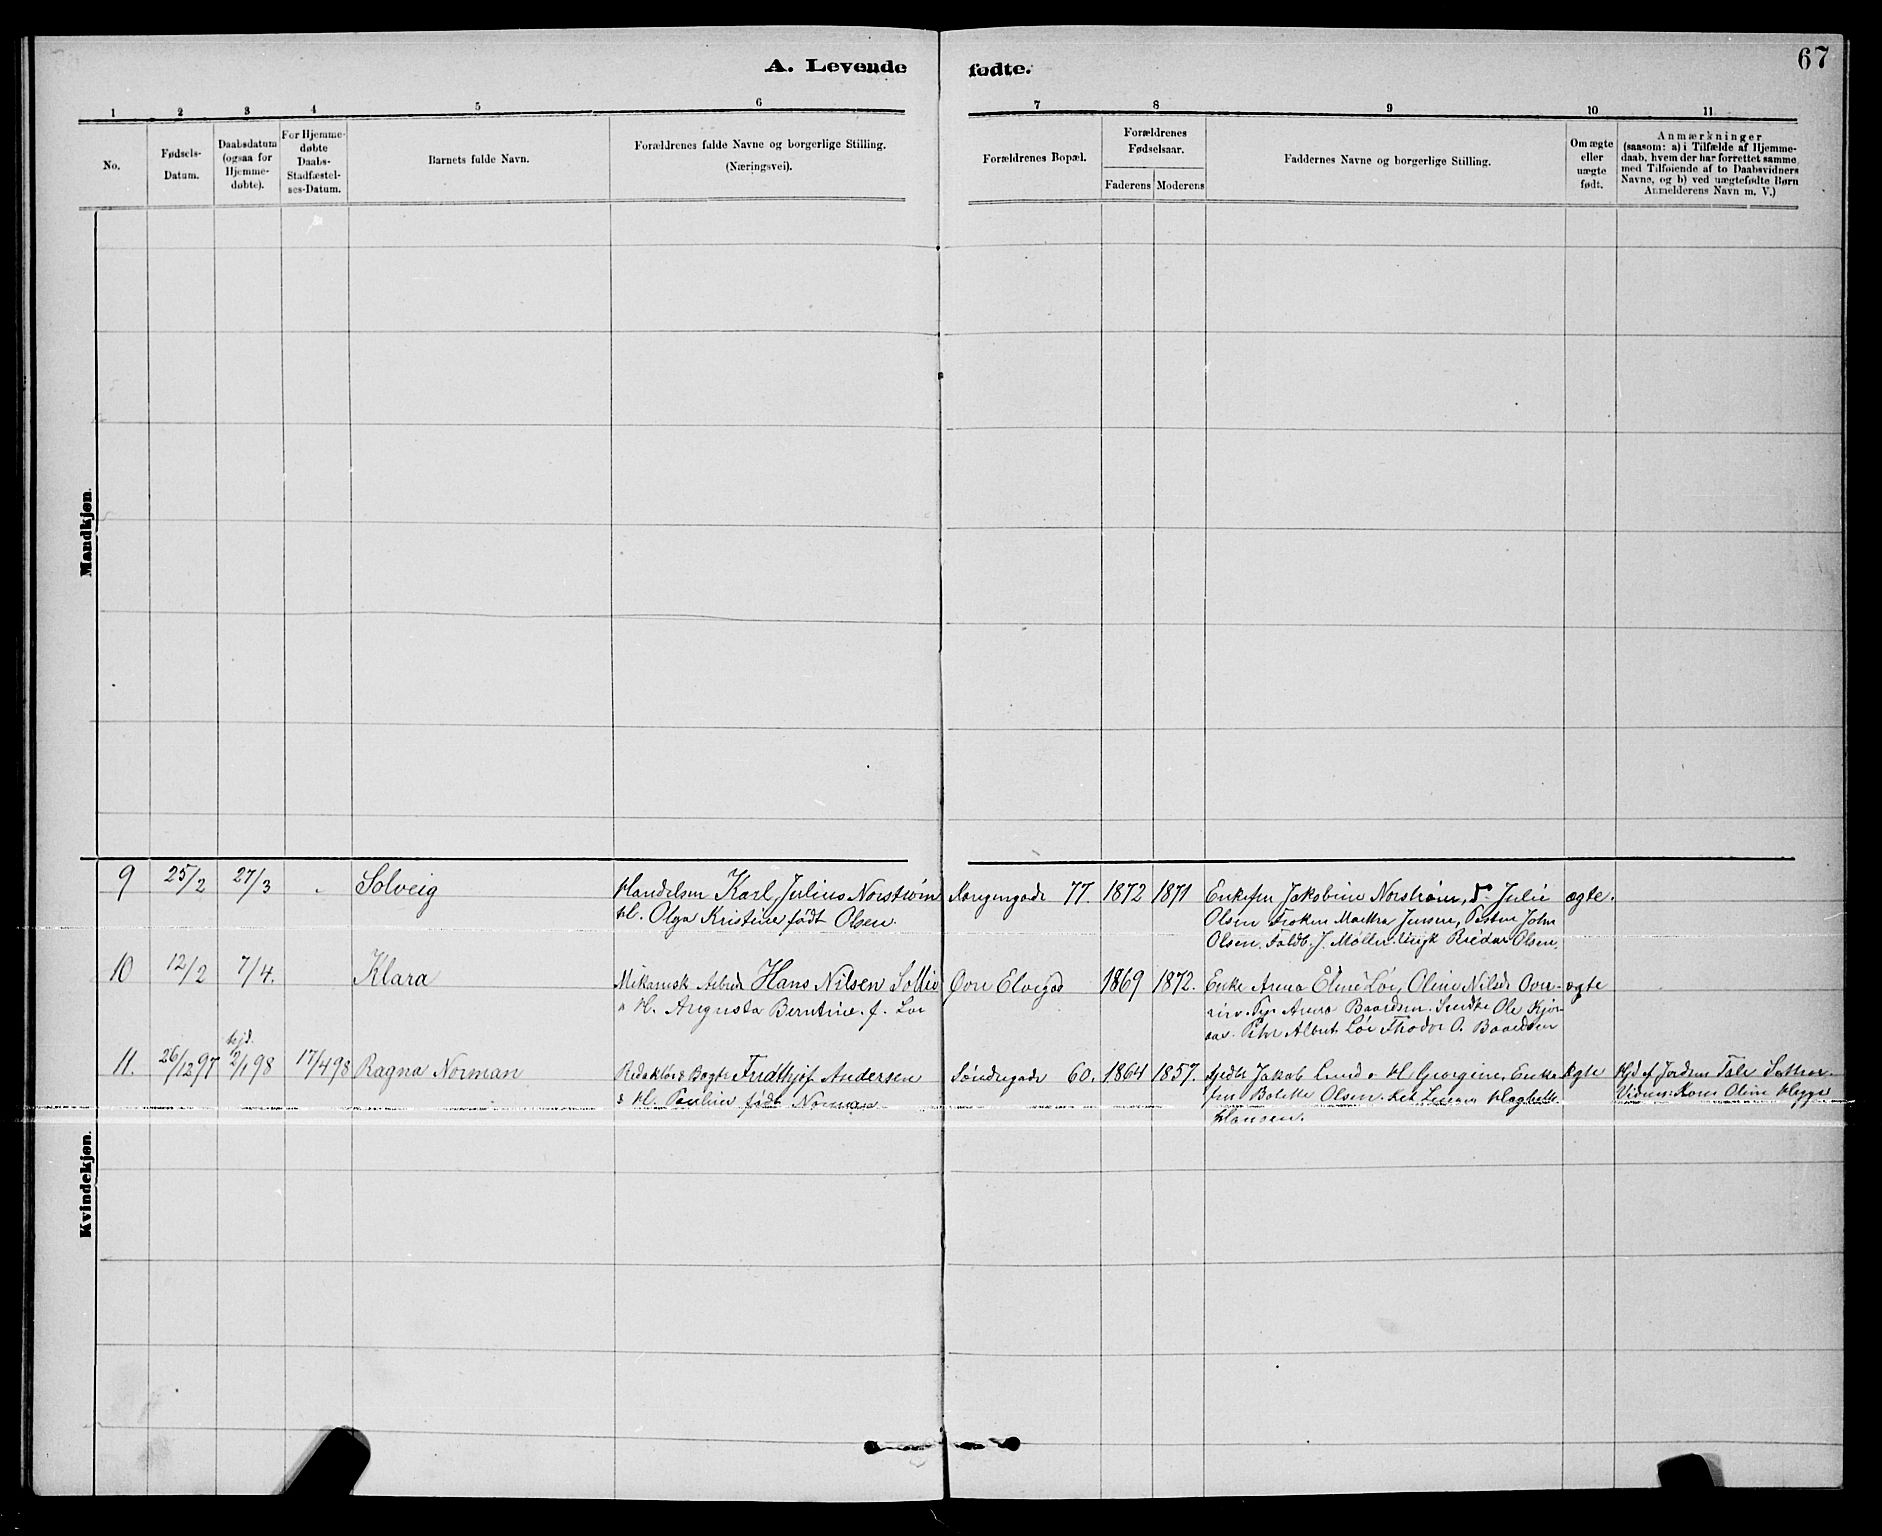 67
A. Levende fødte.
1 2 3 4 5 6 7 8 9 10 11
No.
Fødsels-
Datum.
Daabsdatum
(ogsaa for
Hjemme-
døbte).
For Hjemme-
døbte
Daabs-
Stadfæstel-
ses-Datum.
Barnets fulde Navn.
Forældrenes fulde Navne og borgerlige Stilling.
(Næringsvei).
Forældrenes Bopæl.
Forældrenes
Fødselsaar.
Faderens Moderens
Faddernes Navne og borgerlige Stilling.
Om ægte
eller
uægte
født.
Anmærkninger
(saasom: a) i Tilfælde af Hjemme-
daab, hvem der har forrettet samme,
med Tilføiende af to Daabsvidners
Navne, og b) ved uægtefødte Børn
Anmelderens Navn m. V.)
Mandkjøn.
Kvindekjøn.
9 25/2 27/3 Solveig
Handelsm Karl Julius Norstrøm
H. Olga Kristine født Olsen.
Kongengade 77. 1872 1871
Enkefru Jakobine Norstrøm, Julie
Olsen Frøken Martha Jensen, John
Olsen. J. Møller. Reidar Olsen.
ægte.
10 12/2 7/4. Klara
Mekanisk Arbeid Hans Nilsen Sollie
o H. Augusta Berntine f. Loe
Øvre Elvegad 1869 1872.
Enke Anna Eline Loe, Oline Nilsd
Pige Anna Baardsen. Ole
Petr Albert Löe Thodor O. Baardsen
ægte
hjd.
11. 26/12 97 2/1 98 17/4 98 Ragna Norman
Redaktør & Bogtr Fridthjof Andersen
& H. Pauline født Norman
Söndregade 60. 1864 1857.
Jakob Lund o H Georgine, Enke
fru Bolette Olsen.
Hansen.
ægte
Hjd af Jordem
Vidner: Kone Oline Hegge